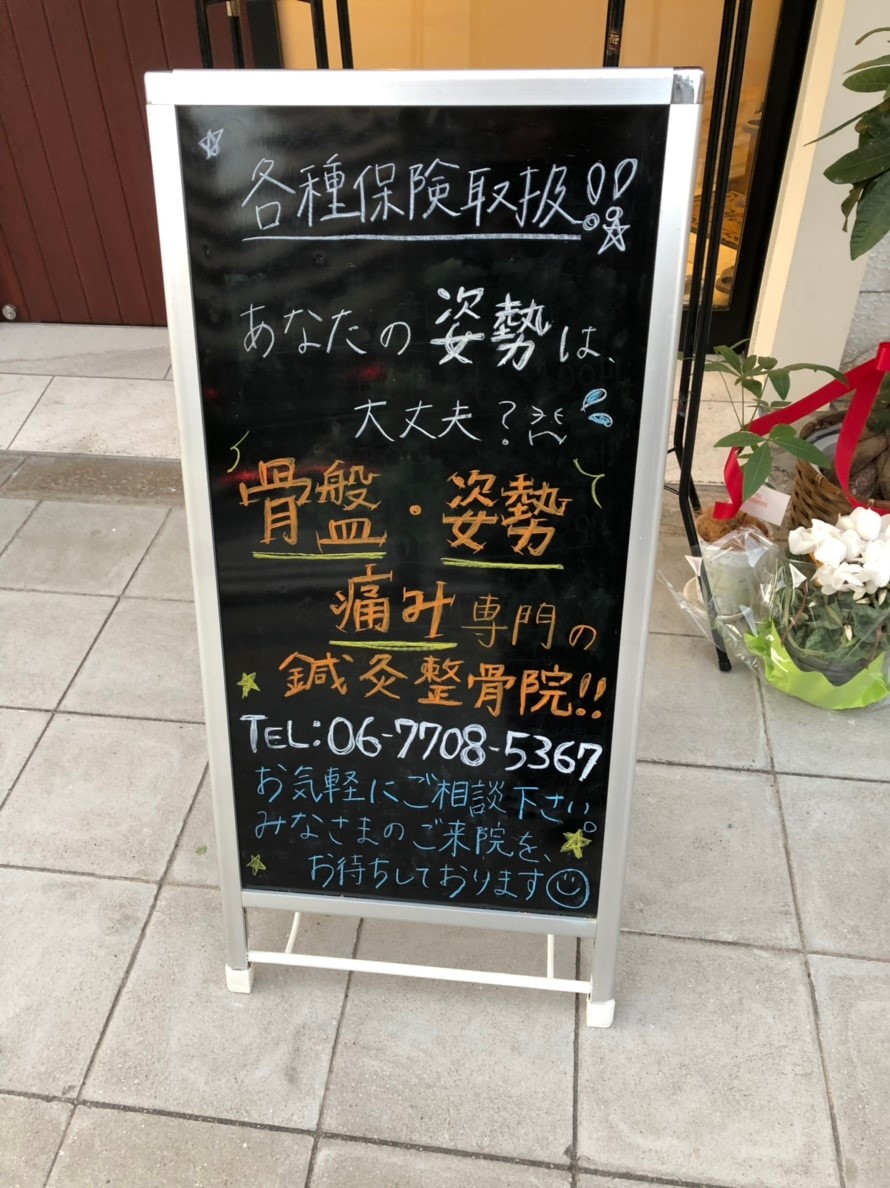 各種保険取扱!!
あなたの姿勢は、
大丈夫?
骨盤・姿勢
痛み専門の
鍼灸整骨院!!
TEL:06-7708-5367
お気軽にご相談下さい。
みなさまのご来院を、
お待ちしております